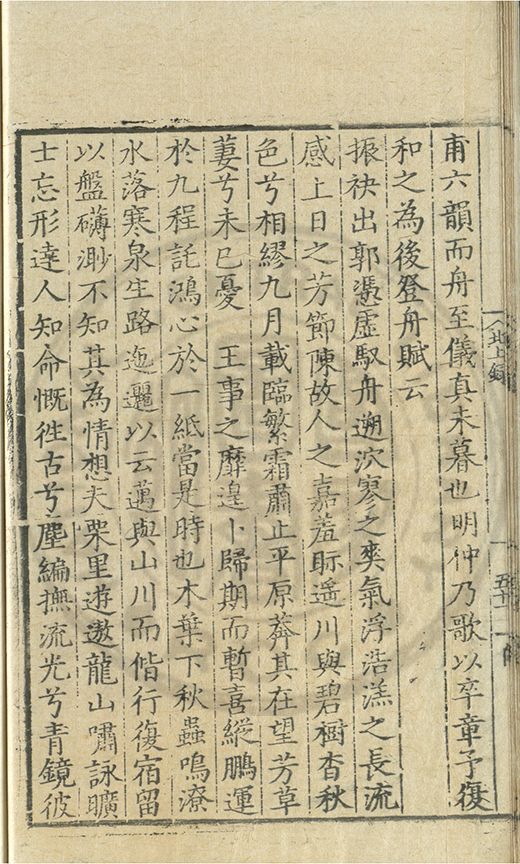 北上錄
甫六韻而舟至儀真未暮也明仲乃歌以卒章予復
和之為後登舟賦云
振袂出郭憑虛馭舟遡泬寥之爽氣浮浩溔之長流
感上日之芳節陳故人之嘉羞眎遥川與碧樹杳秋
色兮相繆九月載臨繁霜肅止平原莽其在望芳草
萋兮未已憂　王事之靡遑卜歸期而暫喜縱鵬運
於九程託鴻心於一紙當是時也木葉下秋蟲鳴潦
水落寒泉生路迤邐以云邁與山川而偕行復宿留
以盤礴渺不知其為情想夫栗里遊遨龍山嘯詠曠
士忘形達人知命慨徃古兮塵編撫流光兮青鏡彼